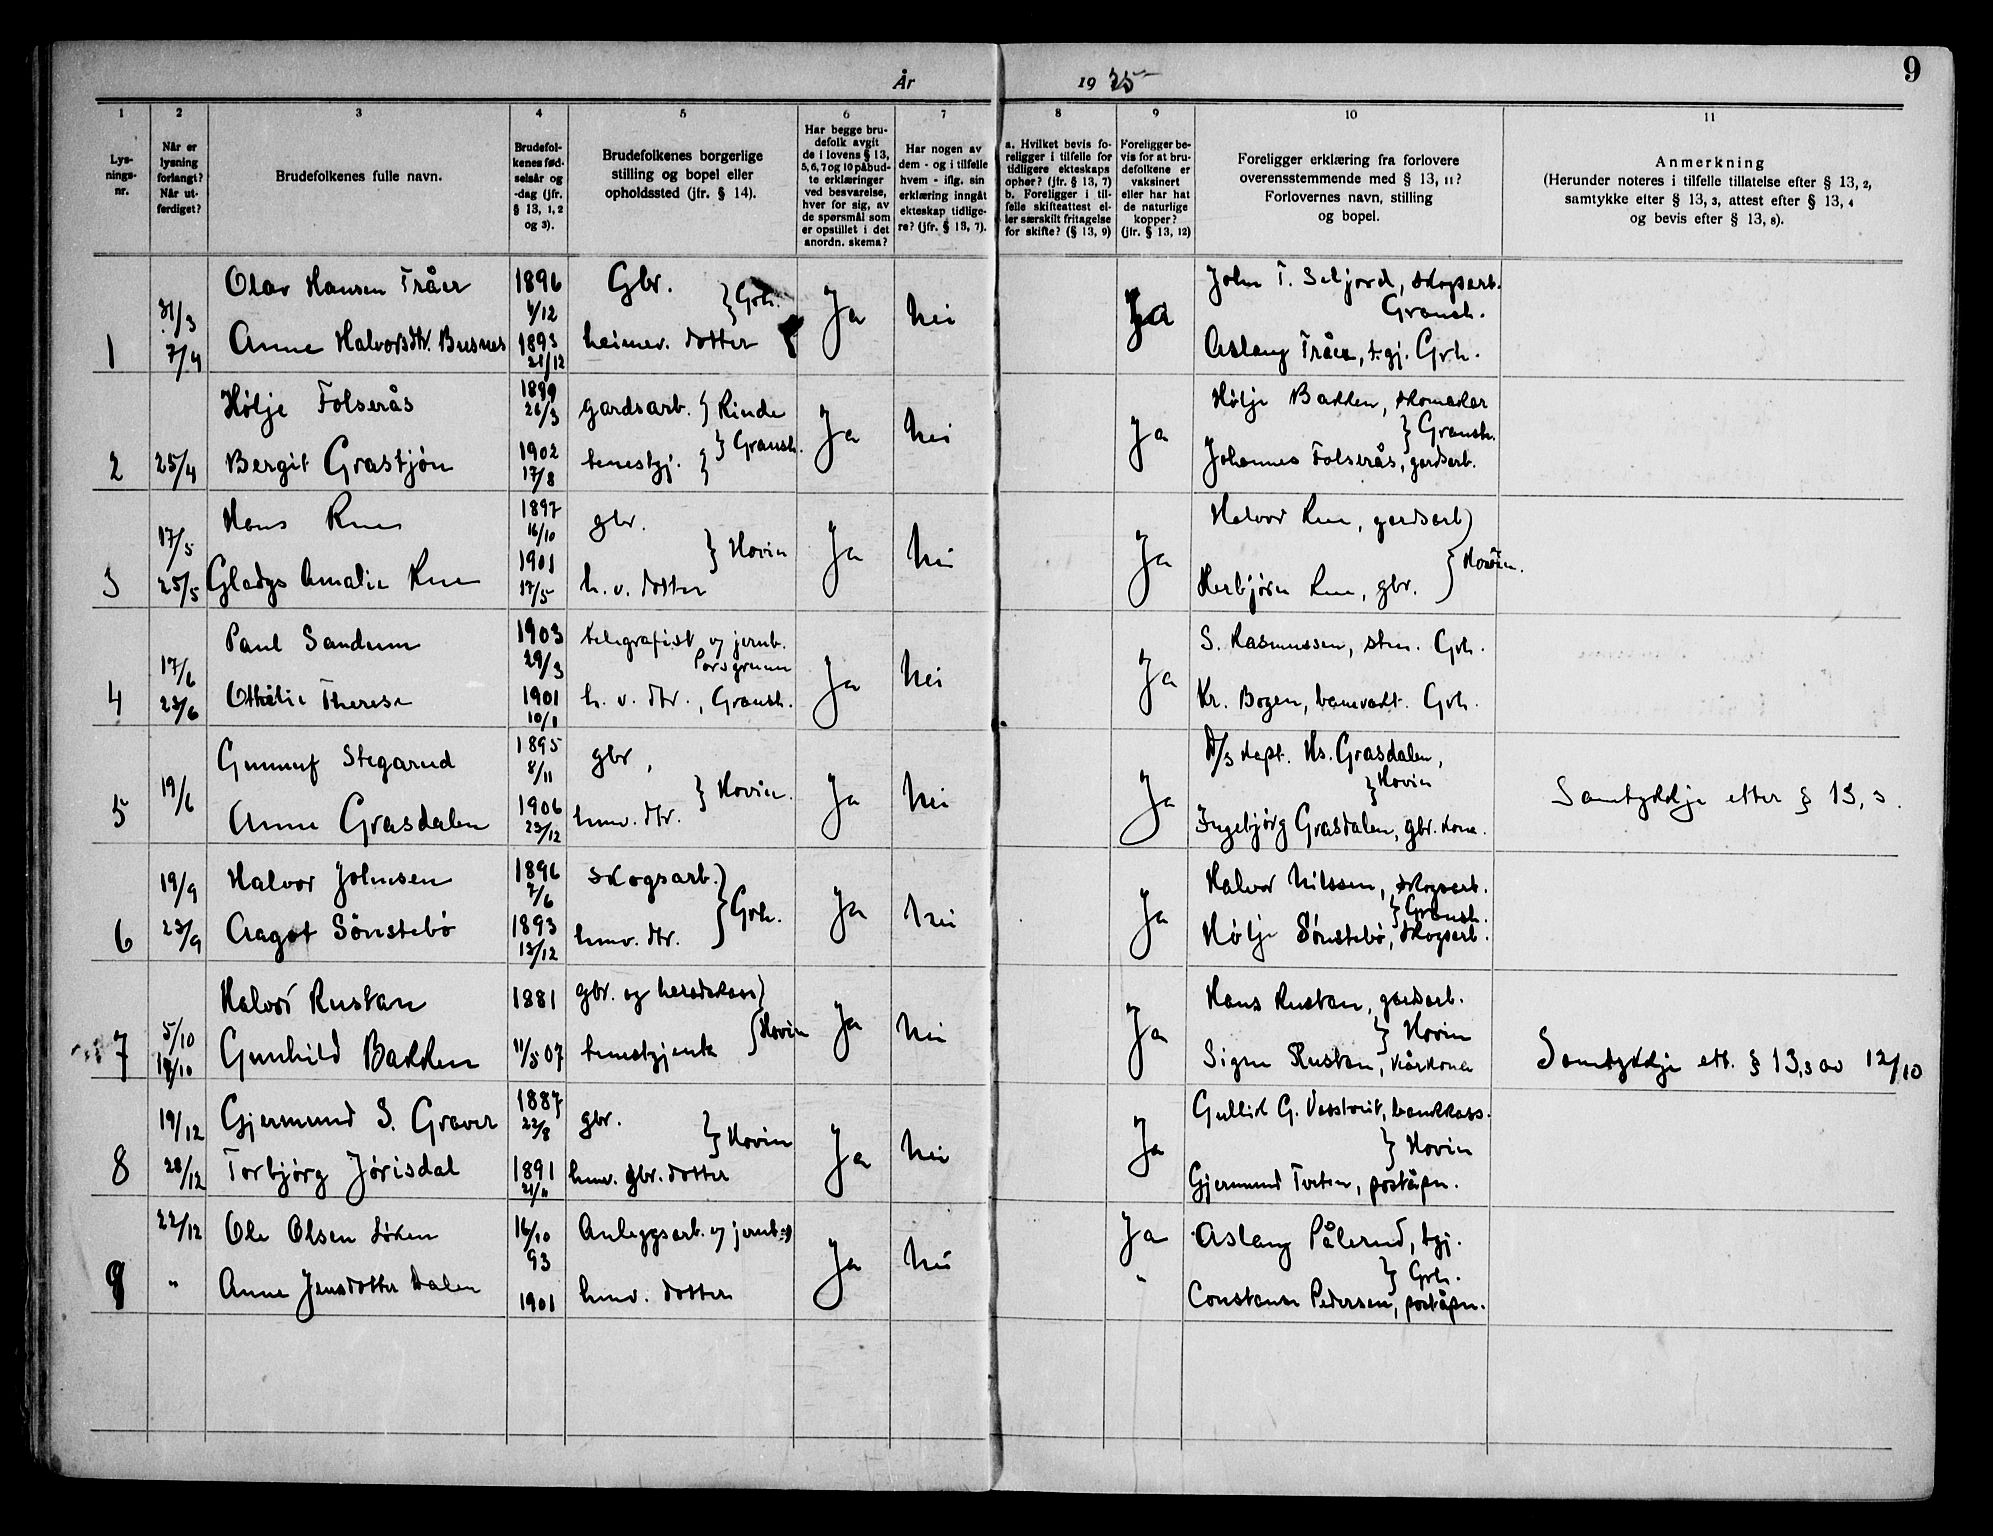 År
1925
9
1
2
3
4
5
6
7
8
9
10
11
Lysningsnr.
Når er lysning forlangt? Når utferdiget?
Brudefolkenes fulle navn.
Brudefolkenes fødselsår og -dag (jfr. § 13, 1, 2 og 3).
Brudefolkenes borgerlige stilling og bopel eller opholdssted (jfr. § 14).
Har begge brudefolk avgit de i lovens § 13, 5, 6, 7 og 10 påbudte erklæringer ved besvarelse, hver for sig, av de spørsmål som er opstillet i det anordn. skema?
Har nogen av dem - og i tilfelle hvem - iflg. sin erklæring inngåt ekteskap tidligere? (jfr. § 13, 7).
a. Hvilket bevis foreligger i tilfelle for tidligere ekteskaps ophør? (jfr. § 13, 7) b. Foreligger i tilfelle skifteattest eller særskilt fritagelse for skifte? (§ 13, 9)
Foreligger bevis for at brudefolkene er vaksinert eller har hat de naturlige kopper? (jfr. § 13, 12)
Foreligger erklæring fra forlovere overensstemmende med § 13, 11? Forlovernes navn, stilling og bopel.
Anmerkning
(Herunder noteres i tilfelle tillatelse efter § 13, 2, samtykke efter § 13, 3, attest efter § 13, 4 og bevis efter § 13, 8).
1
31/3
7/4
Olav Hansen Tråer
1896 4/12
Gbr. } Grh.
Anne Halvorsdtr. Busnes
1893 21/12
heimev. dotter
Ja
Nei
Ja
John T. Seljord, skogsarb. Gransh.
Aslaug Tråer, tgj. Grh.
2
25/4
Hølje Folserås
1899 26/3
gardsarb. } Rinde
Bergit Grastjøn
1902 17/8
tenestgj. } Gransh.
Ja
Nei
Ja
Hølje Bakken, skomaker
} Gransh.
Johannes Folserås, gardsarb.
3
17/5
25/5
Hans Rue
1897 16/10
gbr. } Hovin
Gladys Amalie Rue
1901 17/5
h. v. dotter
Ja
Nei
Ja
Halvor Rue, gardsarb.
} Hovin.
Herbjørn Rue, gbr.
4
17/6
23/6
Paul Sandum
1903 29/3
telegrafist og jernb. Porsgrunn
Othilie Therese
1901 10/1
h. v. dtr., Gransh.
Ja
Nei
Ja
S. Rasmussen, stm. Grh.
Kr. Bogen, banevakt. Grh.
5
19/6
Gunnuf Stegarud
1895 8/11
gbr, } Hovin.
Anne Grasdalen
1906 23/12
hmv. dtr.
Ja
Nei
Ja
D/s kapt. Hs. Grasdalen,
} Hovin
Ingebjørg Grasdalen, gbr. kone.
Samtykkje etter § 13, 3.
6
19/9
23/9
Halvor Johnsen
1896 7/6
skogsarb. } Grh.
Aagot Sønstebö
1893 13/12
hmv. dtr.
Ja
Nei
Ja
Halvor Nilssen, skogsarb.
} Gransh.
Hølje Sønstebø, skogsarb.
7
5/10
19/10
Halvor Rustan
1881
gbr. og heradskass
} Hovin
Gunhild Bakken
11/5 07
tenestgjenta
Ja
Nei
Ja
Hans Rustan, gardsarb.
} Hovin
Signe Rustan, kårkone
Samtykkje ett. § 13,3 av 12/10
8
19/12
28/12
Gjermund S. Graver
1887 22/8
gbr. } Hovin
Torbjørg Jørisdal
1891 21/11
hmv. gbr. dotter
Ja
Nei
Ja
Gullik G. Vesstovit, bankkass.
} Hovin
Gjermund Tveten, poståpn.
9
22/12
"
Ole Olsen Løken
16/10 93
Anleggsarb. og jernb.
Anne Jensdotter Dalen
1901
hmv. dotter
Ja
Nei
Ja
"
Aslaug Pålerud, tgj.
} Grh.
Constanse Pedersen, poståpn.